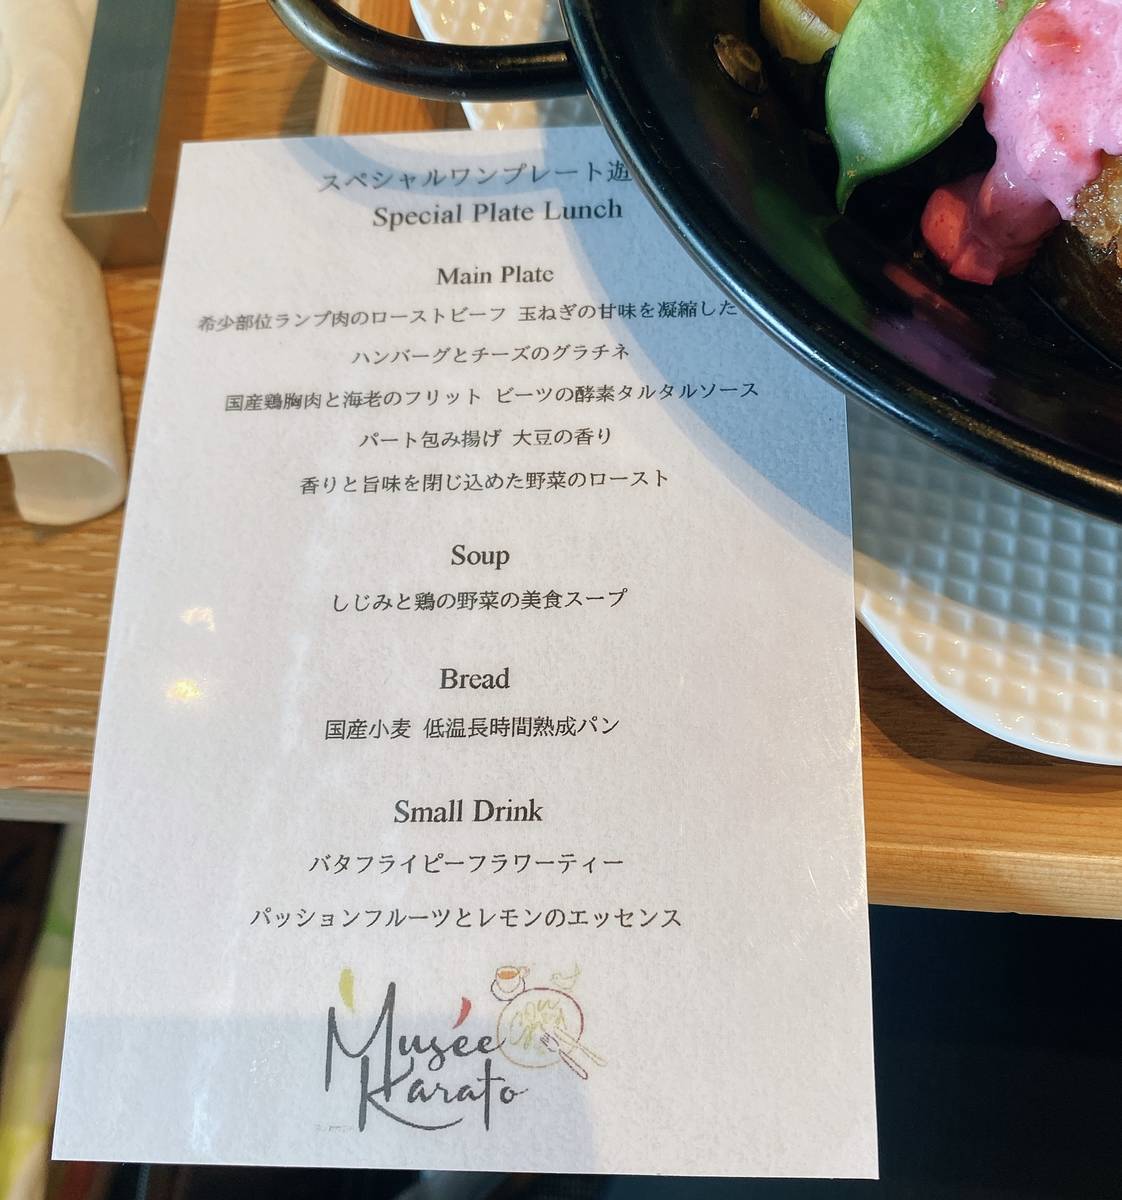 スペシャルワンプレート遊
Special Plate Lunch
Main Plate
希少部位ランプ肉のローストビーフ 玉ねぎの甘味を凝縮した
ハンバーグとチーズのグラチネ
国産鶏胸肉と海老のフリット ビーツの酵素タルタルソース
パート包み揚げ 大豆の香り
香りと旨味を閉じ込めた野菜のロースト
Soup
しじみと鶏の野菜の美食スープ
Bread
国産小麦 低温長時間熟成パン
Small Drink
バタフライピーフラワーティー
パッションフルーツとレモンのエッセンス
Musée
Karato